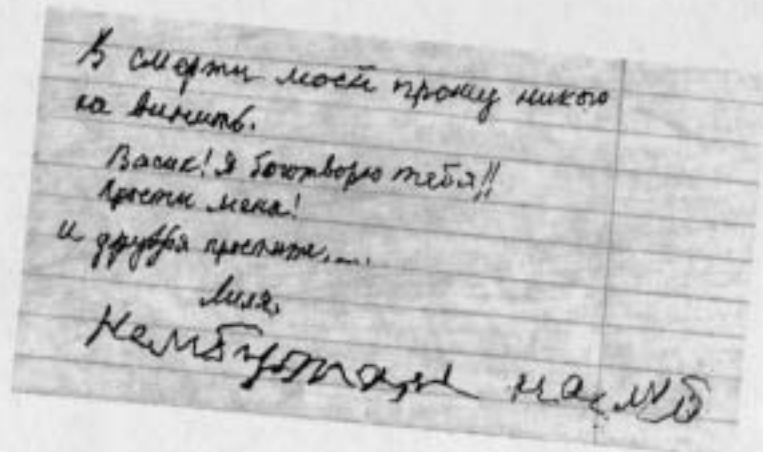 В смерти моей прошу никого
не винить.
Васик! Я боготворю тебя!!
Прости меня!
и друзья простите....
Лиля.
Нембутал